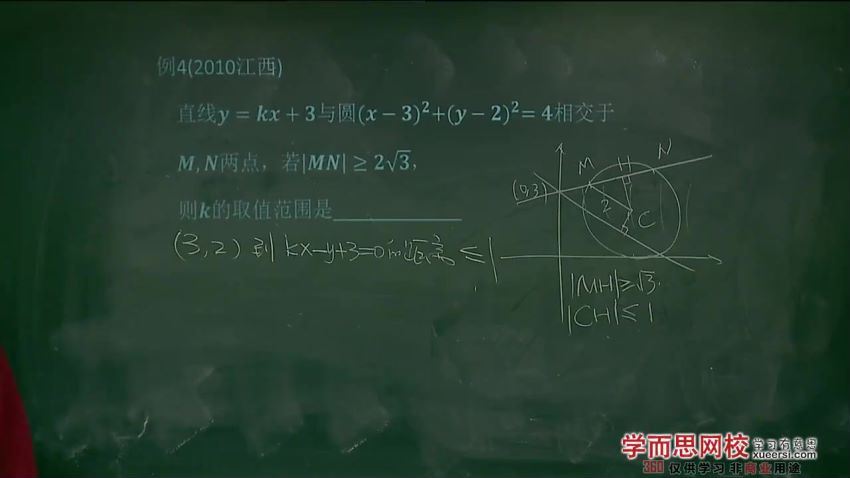 例4(2010江西)
直线y = kx + 3与圆(x − 3)²+(y − 2)²= 4相交于
M, N两点，若|MN| ≥ 2√3，
则k的取值范围是____________
(3,2) 到 kx−y+3=0的距离 ≤ 1
M H N
(0,3)
2 C
|MH|≥√3.
|CH|≤1
学而思网校 学习有意思
xueersi.com
360 仅供学习 非商业用途